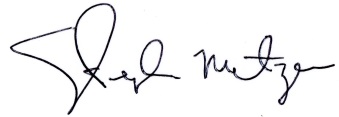 Stephen Metzger